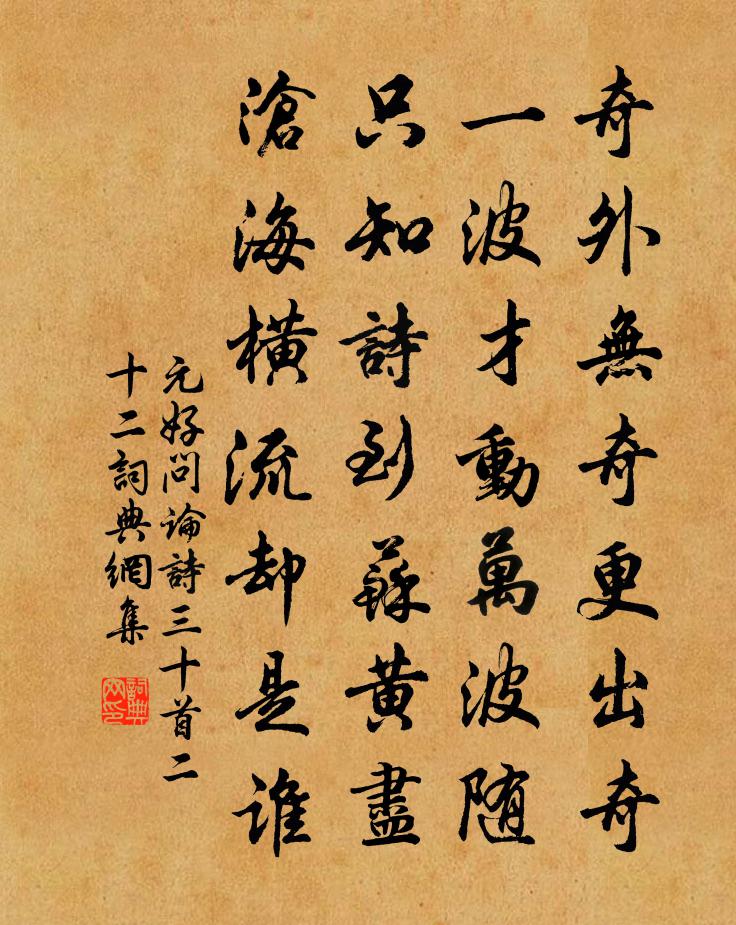 奇外無奇更出奇
一波才動萬波随
只知詩到蘇黃盡
滄海橫流却是誰
元好問論詩三十首二
十二詞典網集
詞典
网印